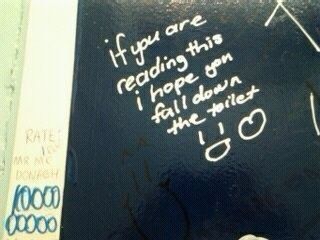 if you are
reading this
i hope you
fall down
the toilet
RATE:
MR MC
DONAGH
10000
00000